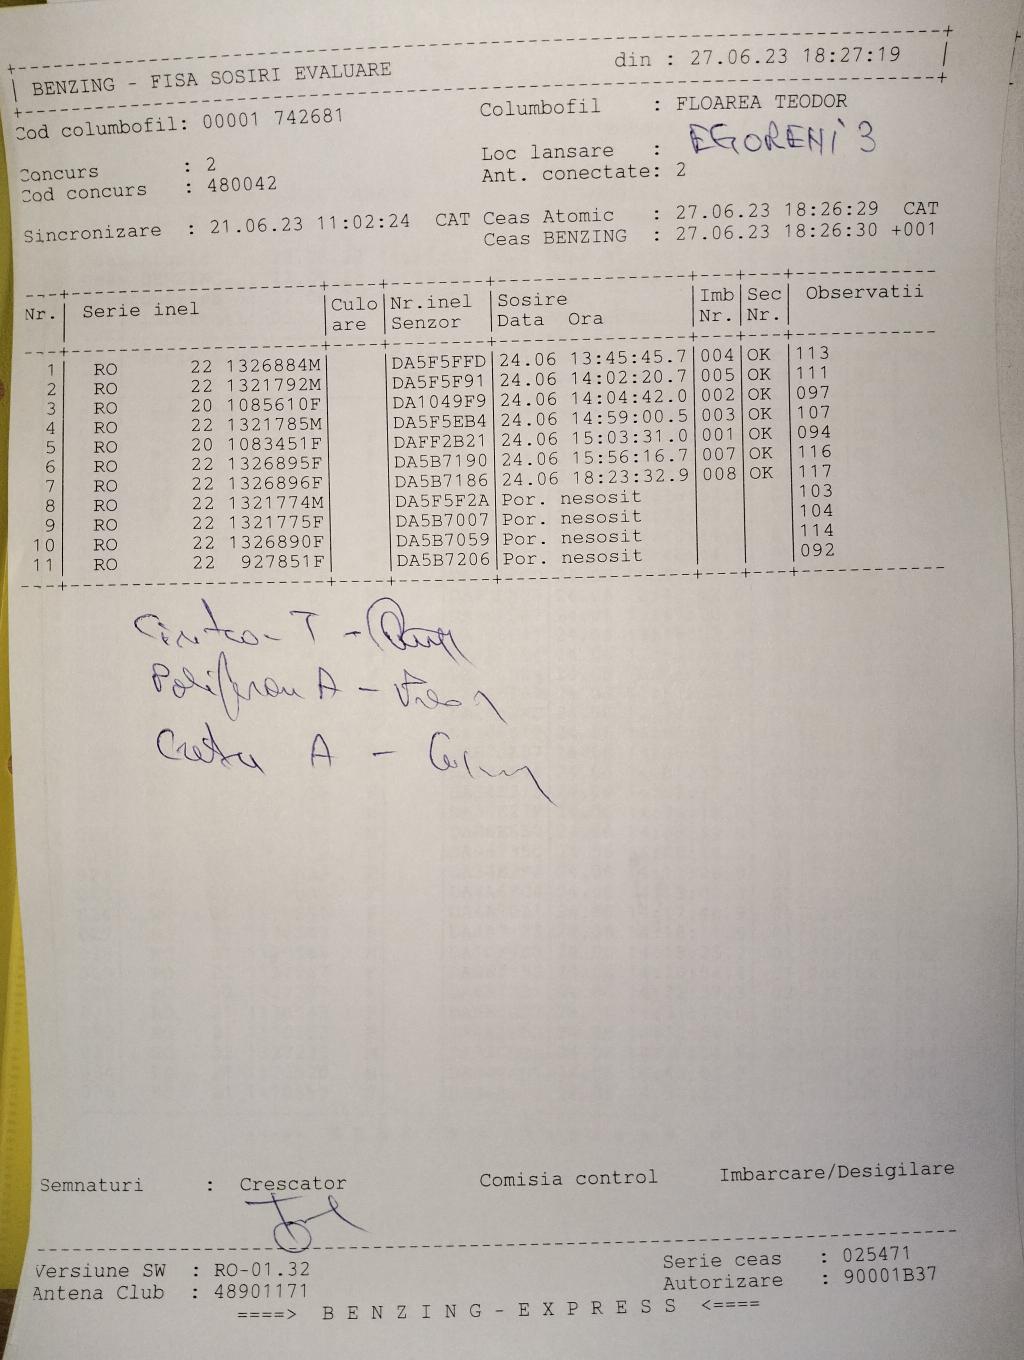 BENZING - FISA SOSIRI EVALUARE din : 27.06.23 18:27:19
Cod columbofil: 00001 742681 Columbofil : FLOAREA TEODOR
Loc lansare : EGORENI 3
Concurs : 2 Ant. conectate: 2
Cod concurs : 480042
Sincronizare : 21.06.23 11:02:24 CAT Ceas Atomic : 27.06.23 18:26:29 CAT
Ceas BENZING : 27.06.23 18:26:30 +001
Nr. Serie inel Culo Nr.inel Sosire Imb Sec Observatii
are Senzor Data Ora Nr. Nr.
1 RO 22 1326884M DA5F5FFD 24.06 13:45:45.7 004 OK 113
2 RO 22 1321792M DA5F5F91 24.06 14:02:20.7 005 OK 111
3 RO 20 1085610F DA1049F9 24.06 14:04:42.0 002 OK 097
4 RO 22 1321785M DA5F5EB4 24.06 14:59:00.5 003 OK 107
5 RO 20 1083451F DAFF2B21 24.06 15:03:31.0 001 OK 094
6 RO 22 1326895F DA5B7190 24.06 15:56:16.7 007 OK 116
7 RO 22 1326896F DA5B7186 24.06 18:23:32.9 008 OK 117
8 RO 22 1321774M DA5F5F2A Por. nesosit 103
9 RO 22 1321775F DA5B7007 Por. nesosit 104
10 RO 22 1326890F DA5B7059 Por. nesosit 114
11 RO 22 927851F DA5B7206 Por. nesosit 092
T -
A -
A -
Semnaturi : Crescator Comisia control Imbarcare/Desigilare
Versiune SW : RO-01.32 Serie ceas : 025471
Antena Club : 48901171 Autorizare : 90001B37
====> B E N Z I N G - E X P R E S S <====